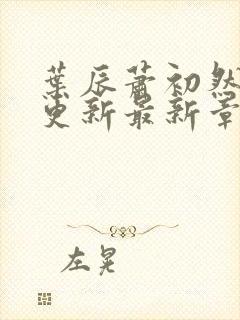 葉辰蕭初然
更新最新章
左晃